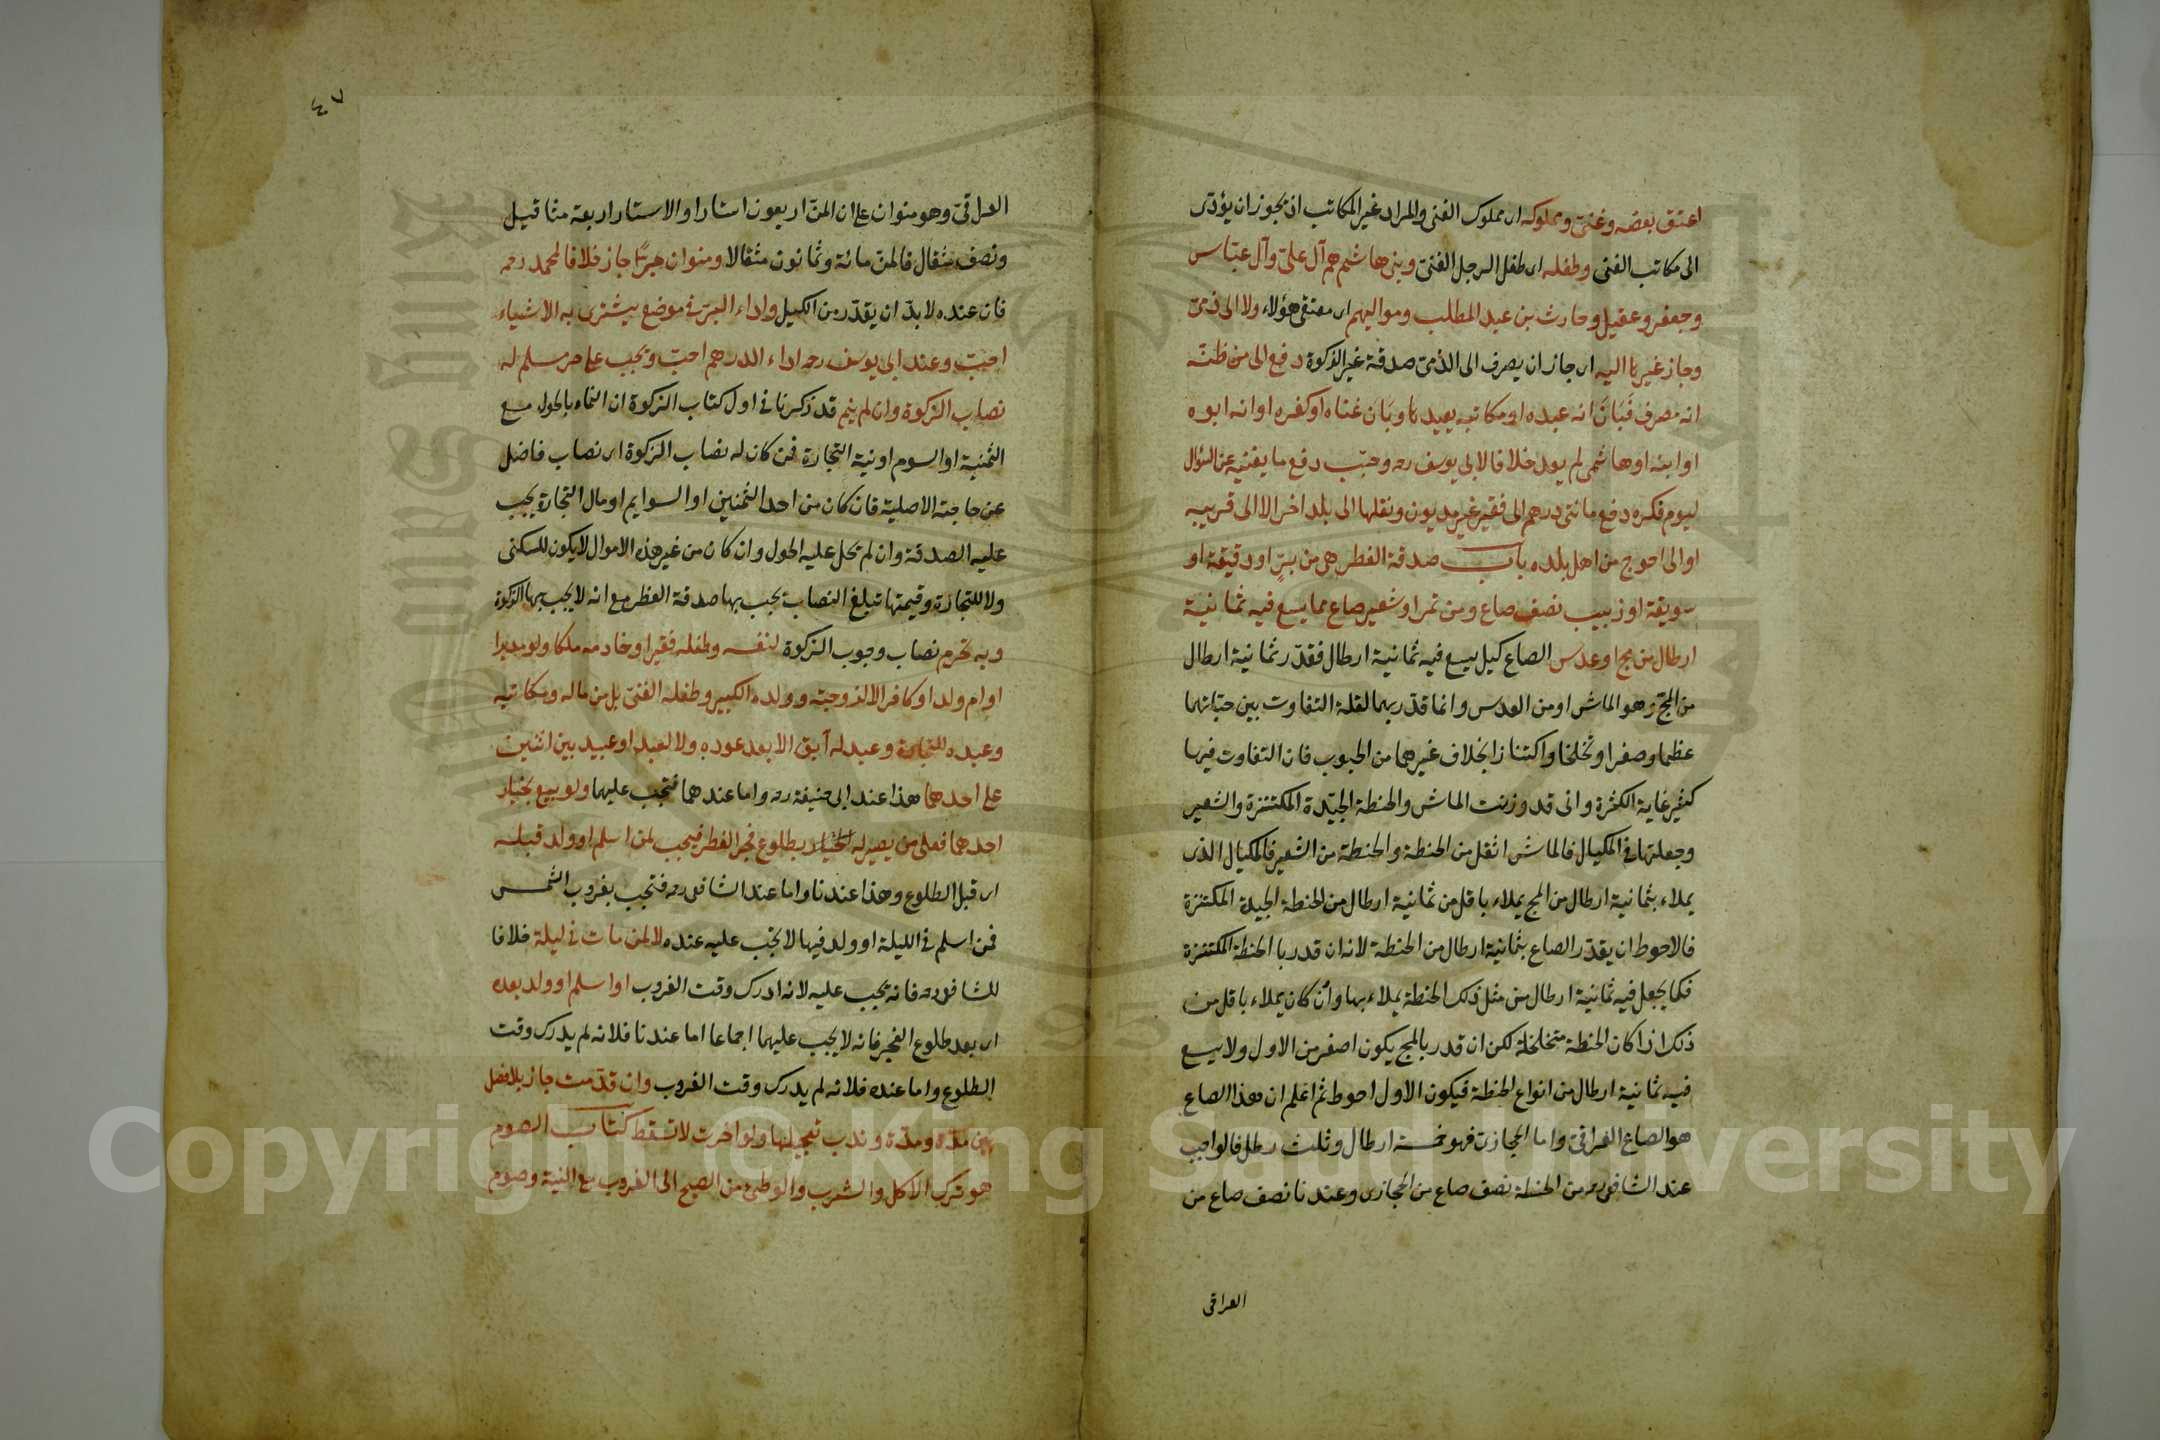 اعتق بعضه وغني ومملوكه اى مملوك الغنى والمراد غير المكاتب اذ يجوز ان يؤدّى
الى مكاتب الغنى وطفله اى طفل الرجل الغنىّ وبنى هاشم هم آل علىّ وآل عبّاس
وجعفر وعقيل وحارث بن عبد المطلب ومواليهم اى معتقى هؤلاء ولا الى ذمىّ
وجاز غيرها اليه اى جاز ان يصرف الى الذمىّ صدقة غير الزكوة دفع الى من ظنّه
انه مصرف فَبَانَ انه عبده او مكاتبه يعيدها وبَانَ غناه او كفره او انه ابوه
او ابنه او هاشمى لم يعد خلافا لابى يوسف رحه وحبّب دفع ما يغنيه عن السؤال
ليوم فكره دفع مائتى درهم الى فقير غير مديون ونقلها الى بلد اخر الا الى قريبه
او الى احوج من اهل بلده باب صدقة الفطر هى من برّ او دقيقه او
سويقه او زبيب نصف صاع ومن تمر او شعير صاع مما يسع فيه ثمانية
ارطال من مج او عدس الصاع كيل يسع فيه ثمانية ارطال فقدّر ثمانية ارطال
من المجّ وهو الماش او من العدس وانما قدّر بهما لقلة التفاوت بين حبّاتهما
عظما وصغرا وتخلخلا واكتنازا بخلاف غيرهما من الحبوب فان التفاوت فيها
كثير غاية الكثرة وانى قد وزنت الماش والحنطة الجيّدة المكتنزة والشعير
وجعلتها فى المكيال فالماش اثقل من الحنطة والحنطة من الشعير فالمكيال الذى
يملاء بثمانية ارطال من المج يملاء باقل من ثمانية ارطال من الحنطة الجيدة المكتنزة
فالاحوط ان يقدّر الصاع بثمانية ارطال من الحنطة لانه ان قدر با الحنطة المكتنزة
فكما يجعل فيه ثمانية ارطال من مثل ذلك الحنطة يملاء بها وان كان يملاء باقل من
ذلك اذا كان الحنطة متخلخلة لكن ان قدر بالمج يكون اصغر من الاول ولا يسع
فيه ثمانية ارطال من انواع الحنطة فيكون الاول احوط ثم اعلم ان هذا الصاع
هو الصاع العراقىّ واما الحجازى فهو خمسة ارطال وثلث رطل فالواجب
عند الشافعى رح من الحنطة نصف صاع من الحجازى وعندنا نصف صاع من
العراقى
٤٧
العراقىّ وهو منوان على ان المنّ اربعون استارا والاستار اربعة مثاقيل
ونصف مثقال فالمنّ مائة وثمانون مثقالا ومنوان برّا جاز خلافا لمحمد رحه
فان عنده لا بدّ ان يقدّر من الكيل واداء البرّ فى موضع يشترى به الاشياء
احبّ وعند ابى يوسف رحه اداء الدرهم احبّ وتجب على حر مسلم له
نصاب الزكوة وان لم ينم قد ذكرنا فى اول كتاب الزكوة ان النماء بالحول مع
الثمنية او السوم او نية التجارة فمن كان له نصاب الزكوة اى نصاب فاضل
عن حاجته الاصلية فان كان من احد الثمنين او السوايم او مال التجارة يجب
عليه الصدقة وان لم يحل عليه الحول وان كان من غير هذه الاموال لا يكون للسكنى
ولا للتجارة وقيمتها تبلغ النصاب يجب بها صدقة الفطر مع انه لا يجب بها الزكوة
وبه تحرم نصاب وجوب الزكوة لنفسه وطفله فقيرا وخادمه ملكا ولو مدبرا
او ام ولد او كافرا لا لزوجته وولده الكبير وطفله الغنىّ بل من ماله ومكاتبه
وعبده للتجارة وعبد له آبق الا بعد عوده ولا لعبد او عبيد بين اثنين
على احدهما هذا عند ابى حنيفة رحه واما عندهما فتجب عليهما ولو بيع بخيار
احدهما فعلى من يصير له بطلوع فجر الفطر فيجب لمن اسلم او ولد قبله
اى قبل الطلوع وهذا عندنا واما عند الشافعى رحه فتجب بغروب الشمس
فمن اسلم فى الليلة او ولد فيها لا يجب عليه عنده لا لمن مات فى ليلة خلافا
للشافعى رحه فانه يجب عليه لانه ادرك وقت الغروب او اسلم او ولد بعده
اى بعد طلوع الفجر فانه لا يجب عليهما اجماعا اما عندنا فلانه لم يدرك وقت
الطلوع واما عنده فلانه لم يدرك وقت الغروب وان قدّمت جاز بلا فصل
بين مدّة ومدّة وندب تعجيلها ولو اخرت لا تسقط كتاب الصوم
هو ترك الاكل والشرب والوطئ من الصبح الى الغروب مع النية وصوم
Copyright © King Saud University